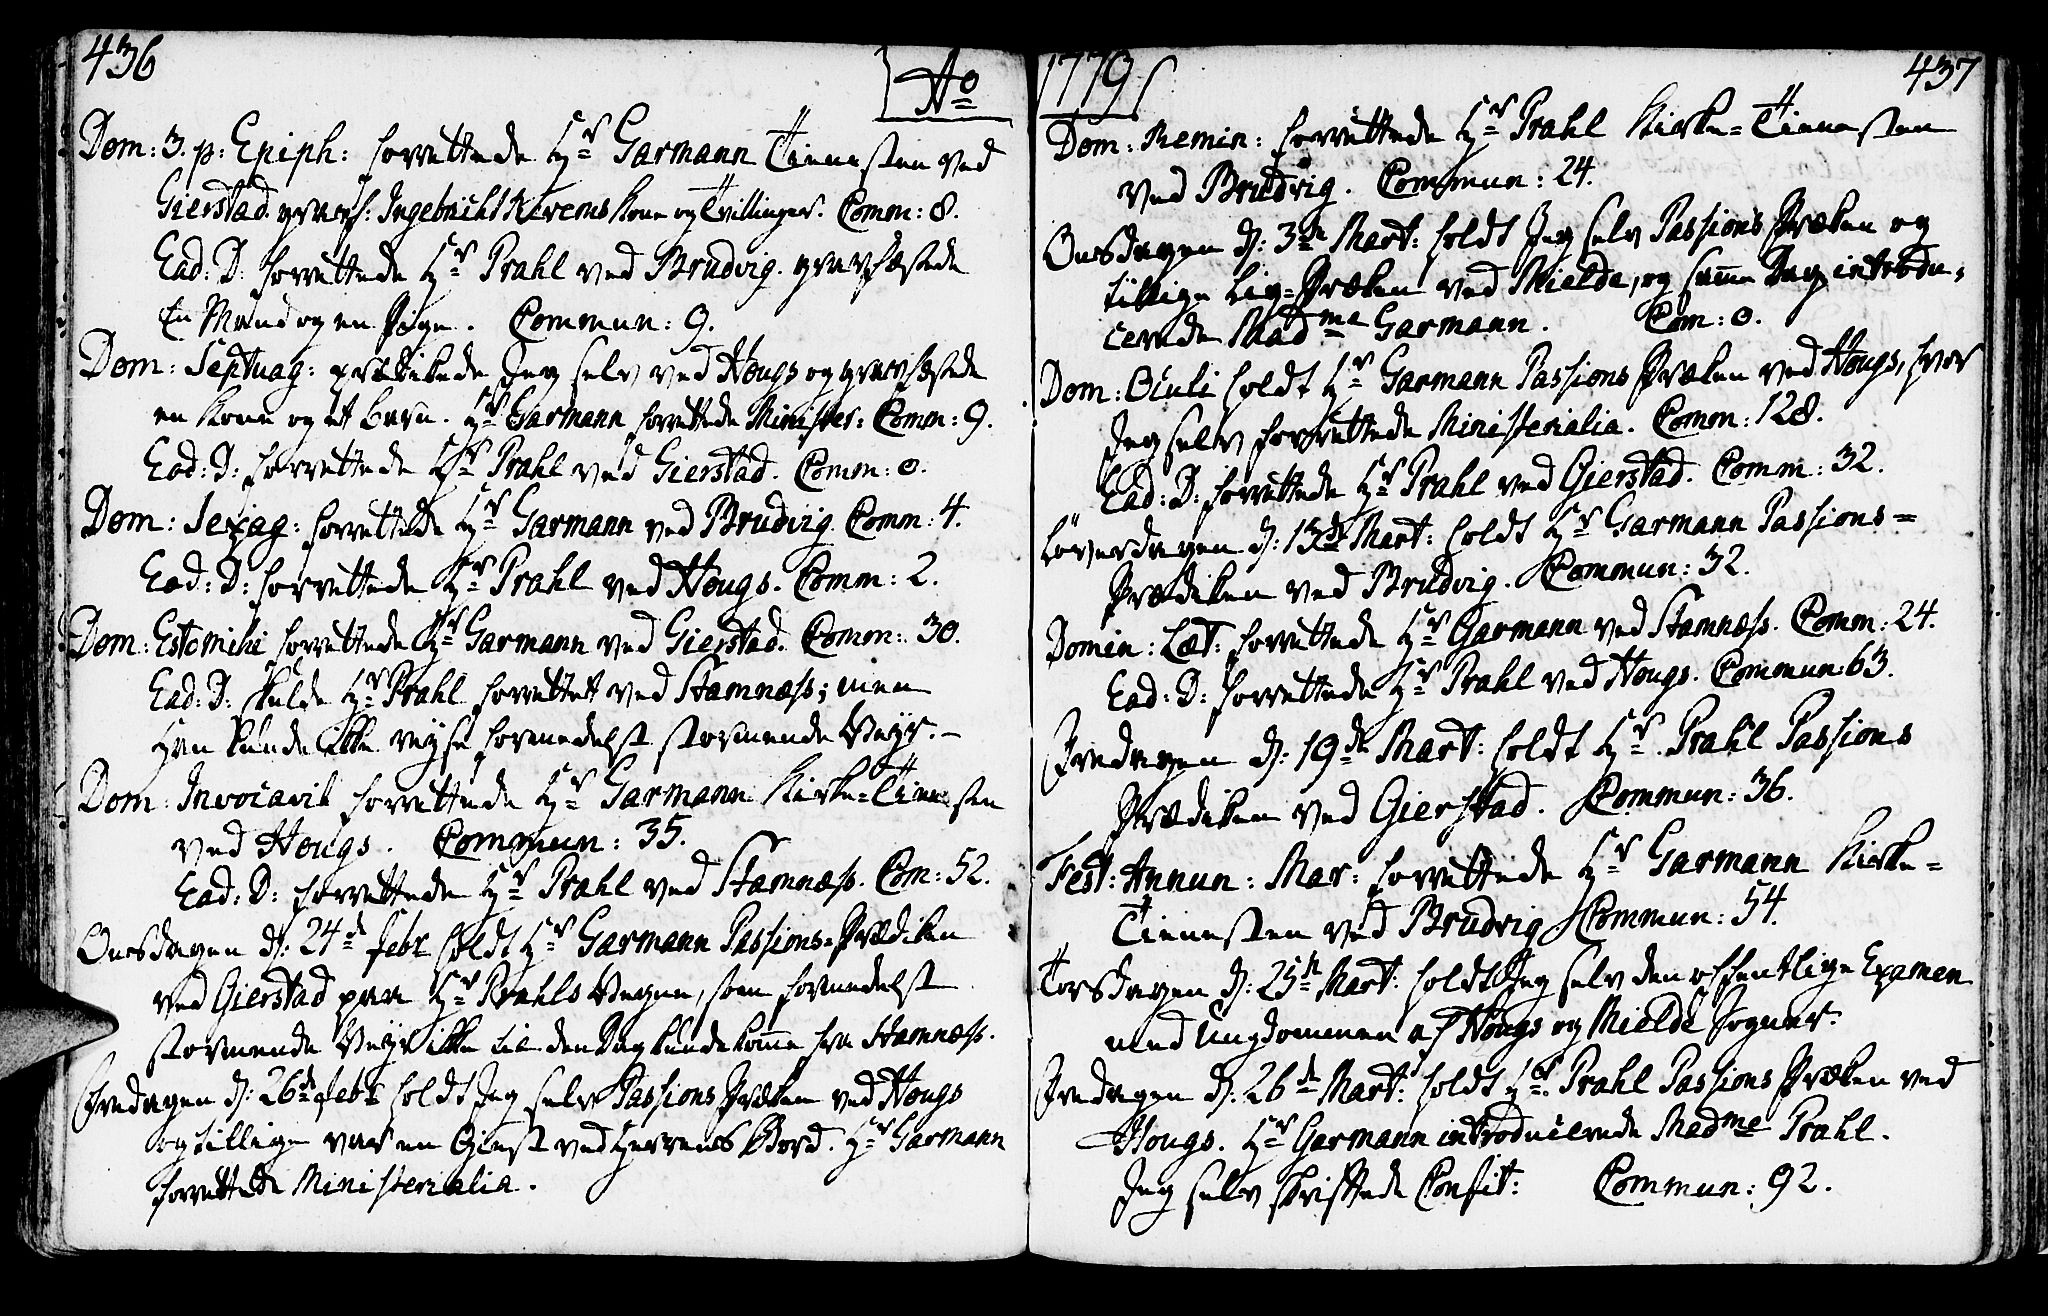 436
Ao
Dom: 3. p: Epiph: forrettede Hr Garmann Tienesten ved
Gierstad. Ingebricht Kone og Tvillinger. Comm: 8.
Ead: D: forrettede Hr Prahl ved Brudvig. gravfæstede
En Mand og en Pige. Commun: 9.
Dom: Septuag: prædikede Jeg selv ved Hougs og gravfæstede
en Kone og et barn. Hr Garmann forrettede Minister: Comm: 9.
Ead: D: forrettede Hr Prahl ved Gierstad. Comm: 0.
Dom: Sexag: forrettede Hr Garmann ved Brudvig. Comm: 4.
Ead: D: forrettede Hr Prahl ved Hougs. Comm: 2.
Dom: Estomihi forrettede Hr Garmann ved Gierstad. Comm: 30.
Ead: D. skulde Hr Prahl forrettet ved Stamnæss; men
Han kunde ikke reyse formedelst stormende Veyr. –
Dom: Invocavit forrettede Hr Garmann Kirke-Tienesten
ved Hougs. Commun: 35.
Ead: D: forrettede Hr Prahl ved Stamnæss. Com: 52.
Onsdagen d: 24de Febr holdt Hr Garmann Passions-Prædiken
ved Gierstad paa Hr Prahls Vegne, som formedelst
stormende Veyr ikke til den Dag kunde komme fra Stamnæss.
Fredagen d: 26de Febr holdt Jeg selv Passions Præken ved Hougs
og tillige var en Giest ved Herrens Bord. Hr Garmann
forrettede Ministerialia.
1779
437
Dom: Remin: forrettede Hr Prahl Kirke-Tienesten
ved Brudvig. Commun: 24.
Onsdagen d: 3de Mart: holdt Jeg selv Passions Præken og
tillige Lig-Præken ved Mielde, og samme Dag introdu-
cerede Madme Garmann. Com: 0.
Dom: Oculi holdt Hr Garmann Passions Præken ved Hougs, hvor
Jeg selv forrettede Ministerialia. Comm: 128.
Ead: D: forrettede Hr Prahl ved Gierstad. Comm: 32.
Löverdagen d: 13de Mart: holdt Hr Garmann Passions-
Prædiken ved Brudvig. Commun: 32.
Domin: Læt: forrettede Hr Garmann ved Stamnæss. Comm: 24.
Ead: D: forrettede Hr Prahl ved Hougs. Commun: 63.
Fredagen d: 19de Mart: holdt Hr Prahl Passions
Prædiken ved Gierstad. Commun: 36.
Fest: Annun: Mar: forrettede Hr Garmann Kirke-
Tienesten ved Brudvig Commun: 54.
Torsdagen d: 25de Mart: holdt Jeg selv den offentlige Examen
med Ungdommen af Hougs og Mielde Sogner.
Fredagen d: 26de Mart: holdt Hr Prahl Passions Præken ved
Hougs. Hr Garmann introducerede Madme Prahl.
Jeg selv skriftede Confit: Commun: 92.